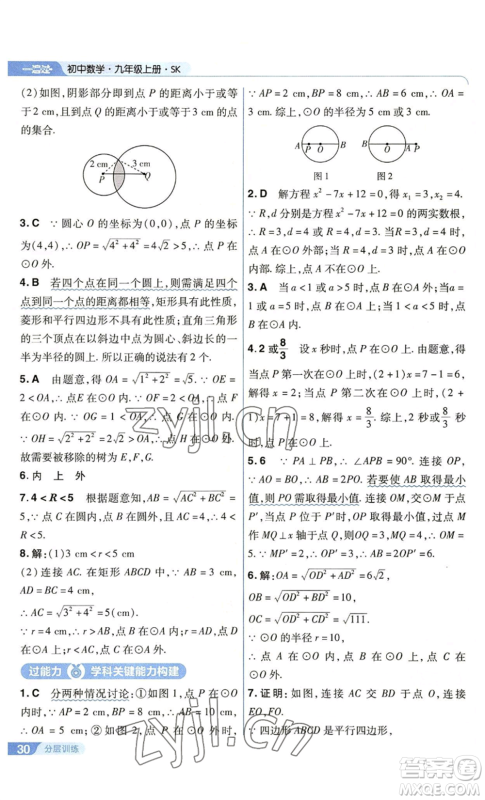 一遍过 初中数学·九年级上册·SK
(2)如图,阴影部分即到点 P 的距离小于或等
于 2 cm,且到点 Q 的距离小于或等于 3 cm 的点
的集合.
2 cm 3 cm
P Q
3. C ∵ 圆心 O 的坐标为(0,0),点 P 的坐标为
(4,4),∴ OP=√(4²+4²)=√32>5,∴ 点 P 在
⊙O 外.
4. B 若四个点在同一个圆上,则需满足四个
点到同一个点的距离都相等,矩形具有此性质,
菱形和平行四边形不具有此性质;直角三角形
的三个顶点在以斜边中点为圆心,斜边长的一
半为半径的圆上.所以正确的说法有 2 个.
5. A 由题意,得 OA=√(1²+2²)=√5.∵ OE=
2<OA,∴ 点 E 在⊙O 内.∵ OF=2<OA,∴ 点 F
在⊙O 内.∵ OG=1<OA,∴ 点 G 在⊙O 内.
∵ OH=√(2²+2²)=2√2>OA,∴ 点 H 在⊙O 外.
故需要被移除的树为 E,F,G.
6. 内 上 外
7. 4<R<5 根据题意知,AB=√(AC²+BC²)=5,∴ 4
<R<5.
8. 解:(1)3 cm
(2)连接 AC.在矩形 ABCD 中,AB=3 cm,
AD=4 cm,
∴ AC=√(3²+4²)=5(cm).
∵ r=4 cm,∴ 点 B 在⊙A 内,点 D 在⊙A 上,
点 C 在⊙A 外.
过能力 学科关键能力构建
1. C 分两种情况讨论:①如图 1,AP=8 cm,
BP=2 cm,∴ AB=10 cm,∴ ⊙O
②如图 2,
30 分层训练
∵ AP=2 cm,BP=8 cm,∴ AB=6 cm,∴ OA=
3 cm.综上,⊙O 的半径为 5 cm 或 3 cm.
A P O B A O B P
图 1 图 2
2. D 解方程 x²-7x+12=0,得 x₁=3,x₂=4.
∵ R,d 分别为方程 x²-7x+12=0 的两实数根,
∴ R=3,d=4 或 R=4,d=3.当 R=3,d=4 时,
点 A 在⊙O 外部;当 R=4,d=3 时,点 A 在⊙O
内部.综上,点 A 在⊙O 内部或外部.
3. A 当 a<1 或 a>5 时,点 B 在⊙A 外;当 1<
a<5 时,点 B 在⊙A 内.
4. 2 或 8/3 设 x 秒时,点 P 在圆上.由题意,得
当点 P 第一次在圆上时,(2+1)x=7-1=6,解
得 x=2;当点 P 第二次在圆上时,(2+1)x=
7+1=8,解得 x=8/3.综上,2 秒或 8/3 秒
时,点 P 在圆上.
5. 6 ∵ PA⊥PB,∴ ∠APB=90°.∵ AO=
BO,∴ AB=2PO.若要使 AB 取得最小
值,则 PO 需取得最小值.连接 OM,交⊙M 于点
P′,当点 P 位于点 P′时,OP′取得最小值.过点
M 作 MQ⊥x 轴于点 Q,则 OQ=3,MQ=4,
∴ OM=5.∵ MP′=2,∴ OP′=3,∴ AB=2OP′=6.
6. 解:∵ OA=√(OD²+AD²)=6√2,
OB=√(OD²+BD²)
OC=√(OD²+CD²)=√111,
∴ 点 A 在⊙O 内,点 B 在⊙O 上,点 C
在⊙O 外.
7. 证明:如图,连接 AC,BD 相交于点 O,连接
EO,FO.
∵ 四边形 ABCD 是平行四边形,
zyjl.cn
zyjl.cn
答案圈
MXQE.COM